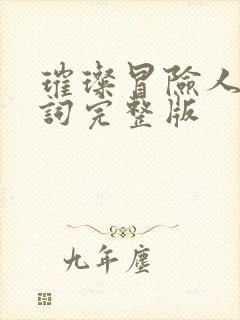 璀璨冒險人
詞完整版
九年塵